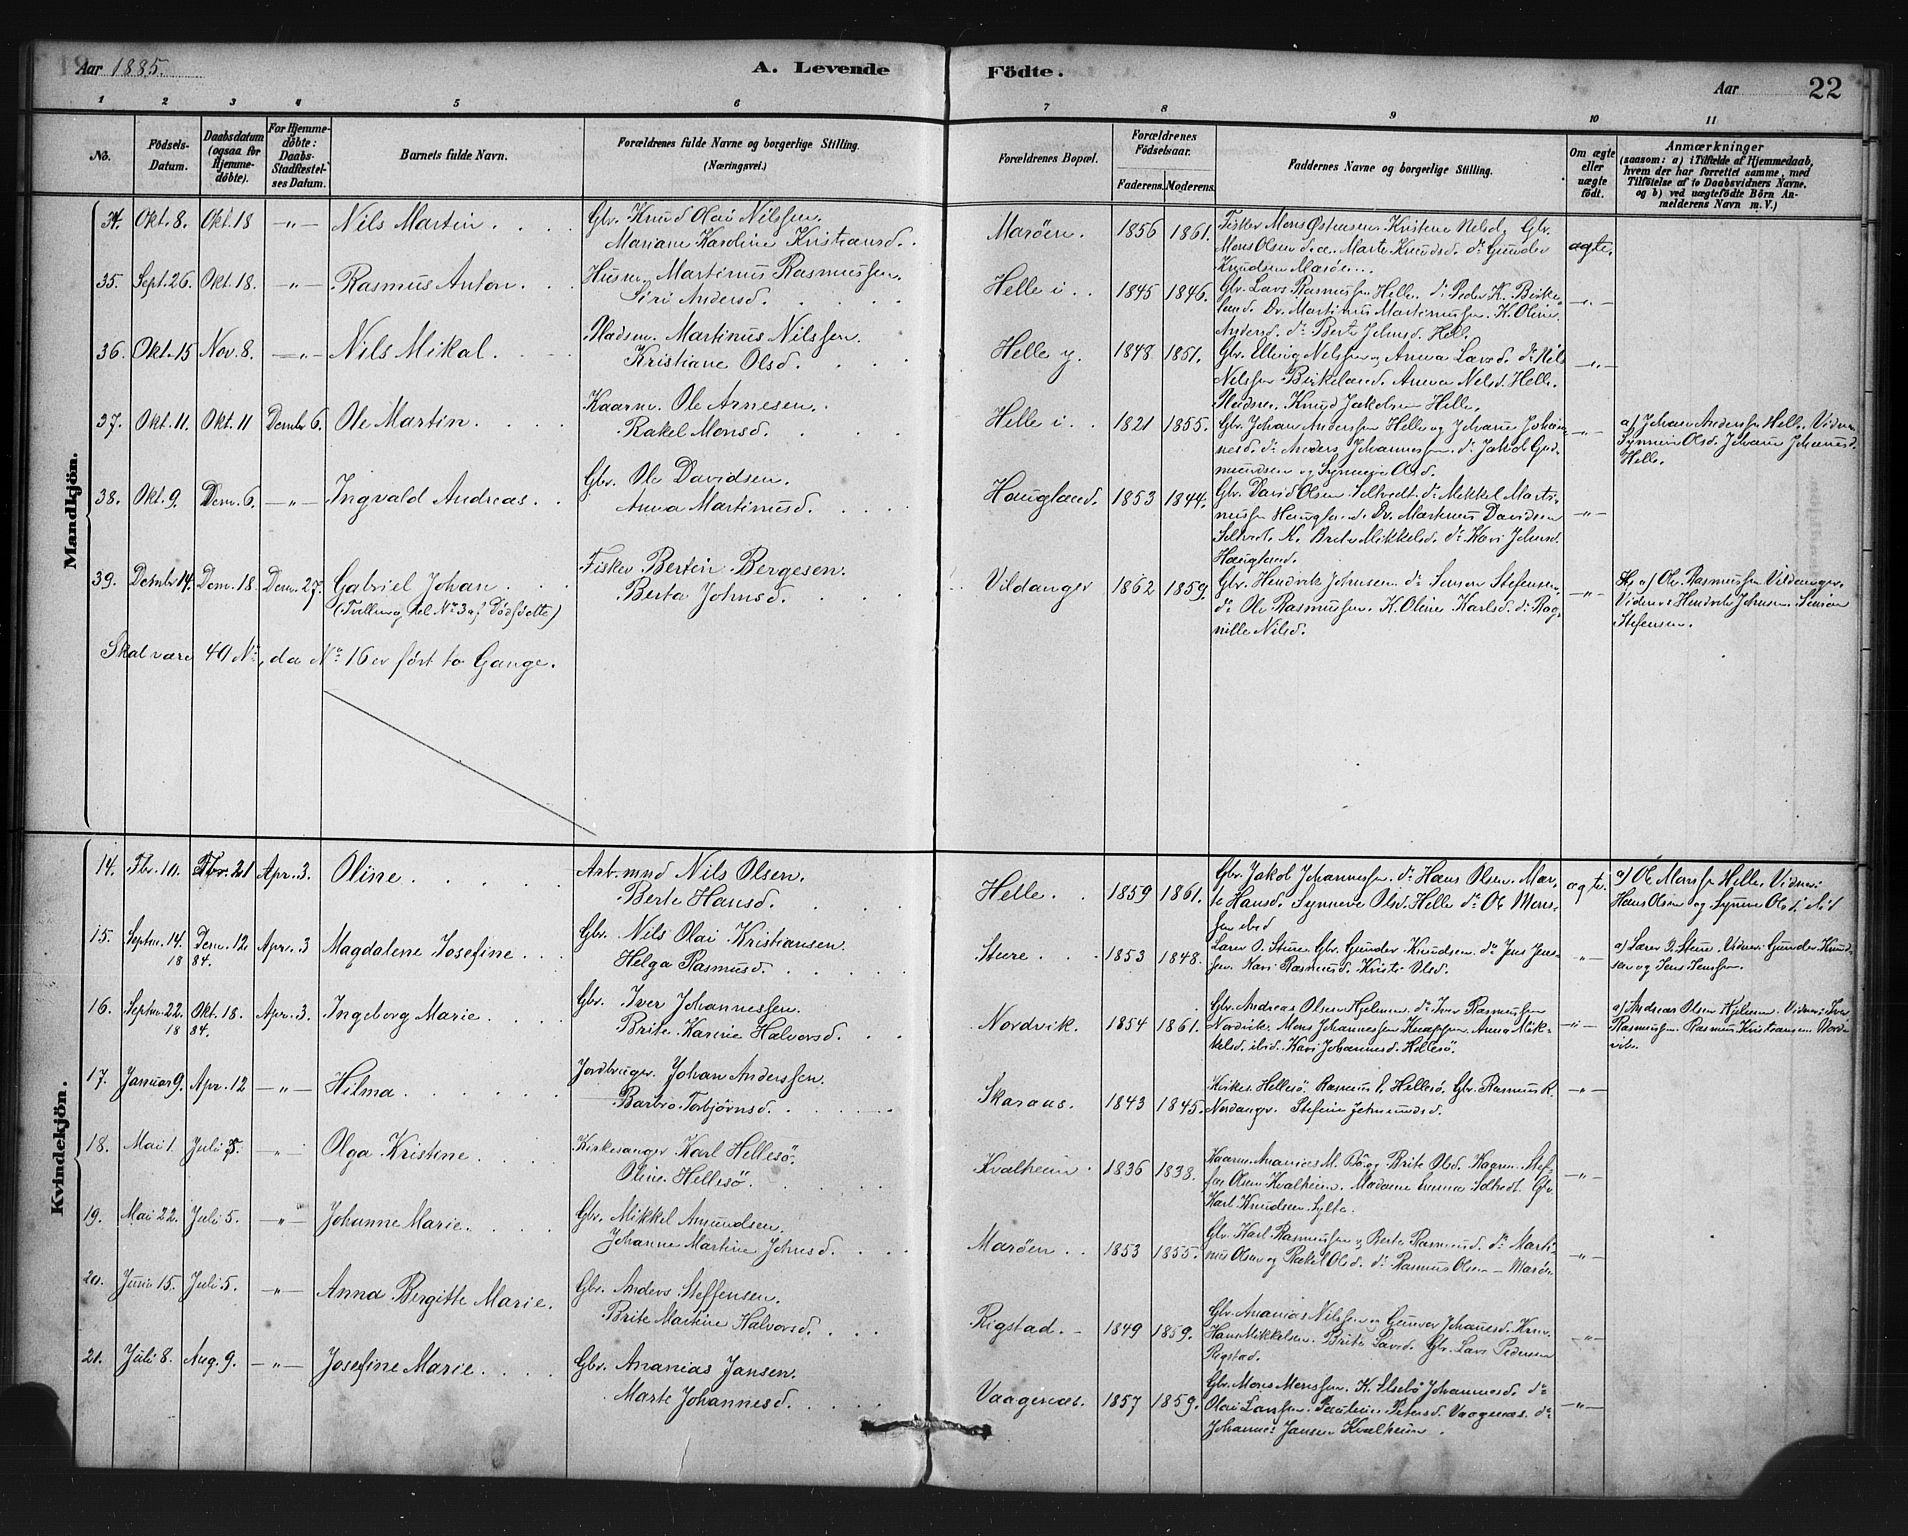 Aar 1885.
A. Levende Födte.
Aar
22
1 2 3 4 5 6 7 8 9 10 11
No.
Födsels-Datum.
Daabsdatum (ogsaa for Hjemme-döbte).
For Hjemme-döbte: Daabs-Stadfæstel-ses Datum.
Barnets fulde Navn.
Forældrenes fulde Navne og borgerlige Stilling.
(Næringsvei.)
Forældrenes Bopæl.
Forældrenes Födselsaar.
Faderens. Moderens.
Faddernes Navne og borgerlige Stilling.
Om ægte eller uægte födt.
Anmærkninger
(saasom: a) i Tilfælde af Hjemmedaab,
hvem der har forrettet samme, med
Tilföielse af to Daabsvidners Navne.
og b) ved uægtefödte Börn An-
melderens Navn m. V.)
Mandkjön.
34. Okt. 8. Okt. 18 —"— Nils Martin Gbr. Knud Olai Nilssen.
Mariane Karoline Kristiansd.
Marøen. 1856 1861. Fisker Mons Østensen. Kristine Nilsd. Gbr.
Mons Olsen Marte Knudsd. do Gunder
Knudsen Marøen
ægte.
35. Sept. 26. Okt. 18. —"— Rasmus Anton. Husm. Martinus Rasmussen.
Siri Andersd.
Helle i. 1845 1846. Gbr. Lars Rasmussen Helle. do Peder K. Birke-
land. Dr. Martinus Martinussen. K. Oline
Andersd. do Berte Johnsd. Hell.
—"—
36. Okt. 15 Nov. 8. —"— Nils Mikal. Pladsm. Martinus Nilssen.
Kristiane Olsd.
Helle y. 1848 1851. Gbr. Elling Nilssen og Anna Larsd. do Nils
Nilssen Birkeland. Anna Nilsd. Helle.
Pladsm. Knud Jakobsen Helle.
—"—
37. Okt. 11. Okt. 11 Decmbr 6. Ole Martin. Kaarm. Ole Arnesen.
Rakel Monsd.
Helle i. 1821 1855. Gbr. Johan Anderssen Helle og Johane Johan-
nesd. do Anders Johannessen. do Jakob Gud-
mundsen og Synneve Olsd.
—"— a) Johan Anderssen Helle. Vidner
Synneve Olsd. Johane Johannesd.
Helle.
38. Okt. 9. Decm. 6. —"— Ingvald Andreas. Gbr. Ole Davidsen.
Anna Martinusd.
Haugland. 1853 1844. Gbr. David Olsen Seltvedt. do Mikkel Marti-
nussen Haugland. Dr. Martinus Davidsen
Seltvedt. K. Brite Mikkelsd. do Kari Johnsd.
Haugland.
—"—
39. Decmbr 14. Decm. 18. Decm. 27. Gabriel Johan. Fisker Bertin Bergesen.
(Tvilling til No 3 af Dødfødte) Berta Johnsd.
Vildanger 1862 1859. Gbr. Hendrik Johnsen. do Simon Stefensen
do Ole Rasmussen. K. Oline Karlsd. do Rag-
nille Nilsd.
—"— a) Ole Rasmussen Vildanger.
Vidner: Hendrik Johnsen. Simon
Stefensen.
Skal være 40 Nr, da No 16 er ført to Gange.
Kvindekjön.
14. Fbr. 10. Fbr. 21 Apr. 3. Oline. Arb.mnd Nils Olsen.
Berte Hansd.
Helle. 1859 1861. Gbr. Jakob Johannessen. do Hans Olsen. Mar-
te Hansd. Synneve Olsd. Helle do Ole Mons-
sen ibid
ægte. a) Ole Monssen Helle. Vidner:
Hans Olsen og Synneve Olsd. ibid
15. Septm. 14. Decm. 12. Apr. 3 Magdalene Josefine. Gbr. Nils Olai Kristiansen.
18 84. Helga Rasmusd.
Sture. 1853 1848. Lærer O. Sture. Gbr. Gunder Knudsen. do Jens Jens-
sen. Kari Rasmusd. Kristi Olsd.
—"— a) Lærer O. Sture. Vidner: Gunder Knud-
sen og Jens Jenssen.
16. Septm. 22. Okt. 18. Apr. 3. Ingeborg Marie. Gbr. Iver Johannessen.
18 84. Brite Karine Halvorsd.
Nordvik. 1854 1861. Gbr. Andreas Olsen Hjelmen. do Iver Rasmussen
Nordvik. Mons Johannessen Knappen. Anna Mik-
kelsd. ibid. Kari Johannesd. Hellesö.
—"— a) Andreas Olsen Hjelmen. Vidner: Iver
Rasmussen. Rasmus Kristiansen Nord-
vik.
17. Januar 9. Apr. 12 —"— Hilma Jordbruger. Johan Anderssen.
Barbro Torbjørnsd.
Skaraas. 1843 1845. Kirkes. Hellesö. Rasmus Hellesö. Gbr. Rasmus R.
Nordanger. Stefine Johnsd.
—"—
18. Mai 1. Juli 5. —"— Olga Kristine Kirkesanger Karl Hellesö.
Oline Hellesö.
Kvalheim. 1836 1838. Kaarm. Ananias M. Bö og Brite Olsd. Kaarm. Stef-
fen Olsen Kvalheim. Madame Emma Seltvedt. Gbr.
Karl Knudsen Sylte.
—"—
19. Mai 22. Juli 5. —"— Johanne Marie. Gbr. Mikkel Amundsen.
Johanne Martine Johnsd.
Marøen. 1853 1855. Gbr. Karl Rasmussen og Berte Rasmusd. do Marti-
nus Olsen og Rakel Olsd. do Rasmus Olsen — Marøen
—"—
20. Juni 15. Juli 5. —"— Anna Bergitte Marie. Gbr. Anders Steffensen.
Brite Martine Halvorsd.
Rigstad. 1849 1859. Gbr. Ananias Nilssen og Gunver Johannesd.
Hans Mikkelsen. Brite Larsd. Gbr. Lars Pedersen
Rigstad.
—"—
21. Juli 8. Aug. 9. —"— Josefine Marie. Gbr. Ananias Jansen.
Marte Johannesd.
Vaagenæs. 1857 1859. Gbr. Mons Monssen. K. Johannesd. do
Olai Larssen. Petersd. Vaagenæs. do
Johannes Jansen Kvalheim.
—"—